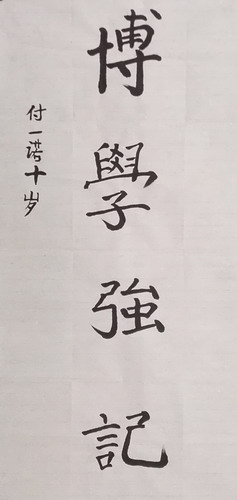 博學強記
付一诺十岁